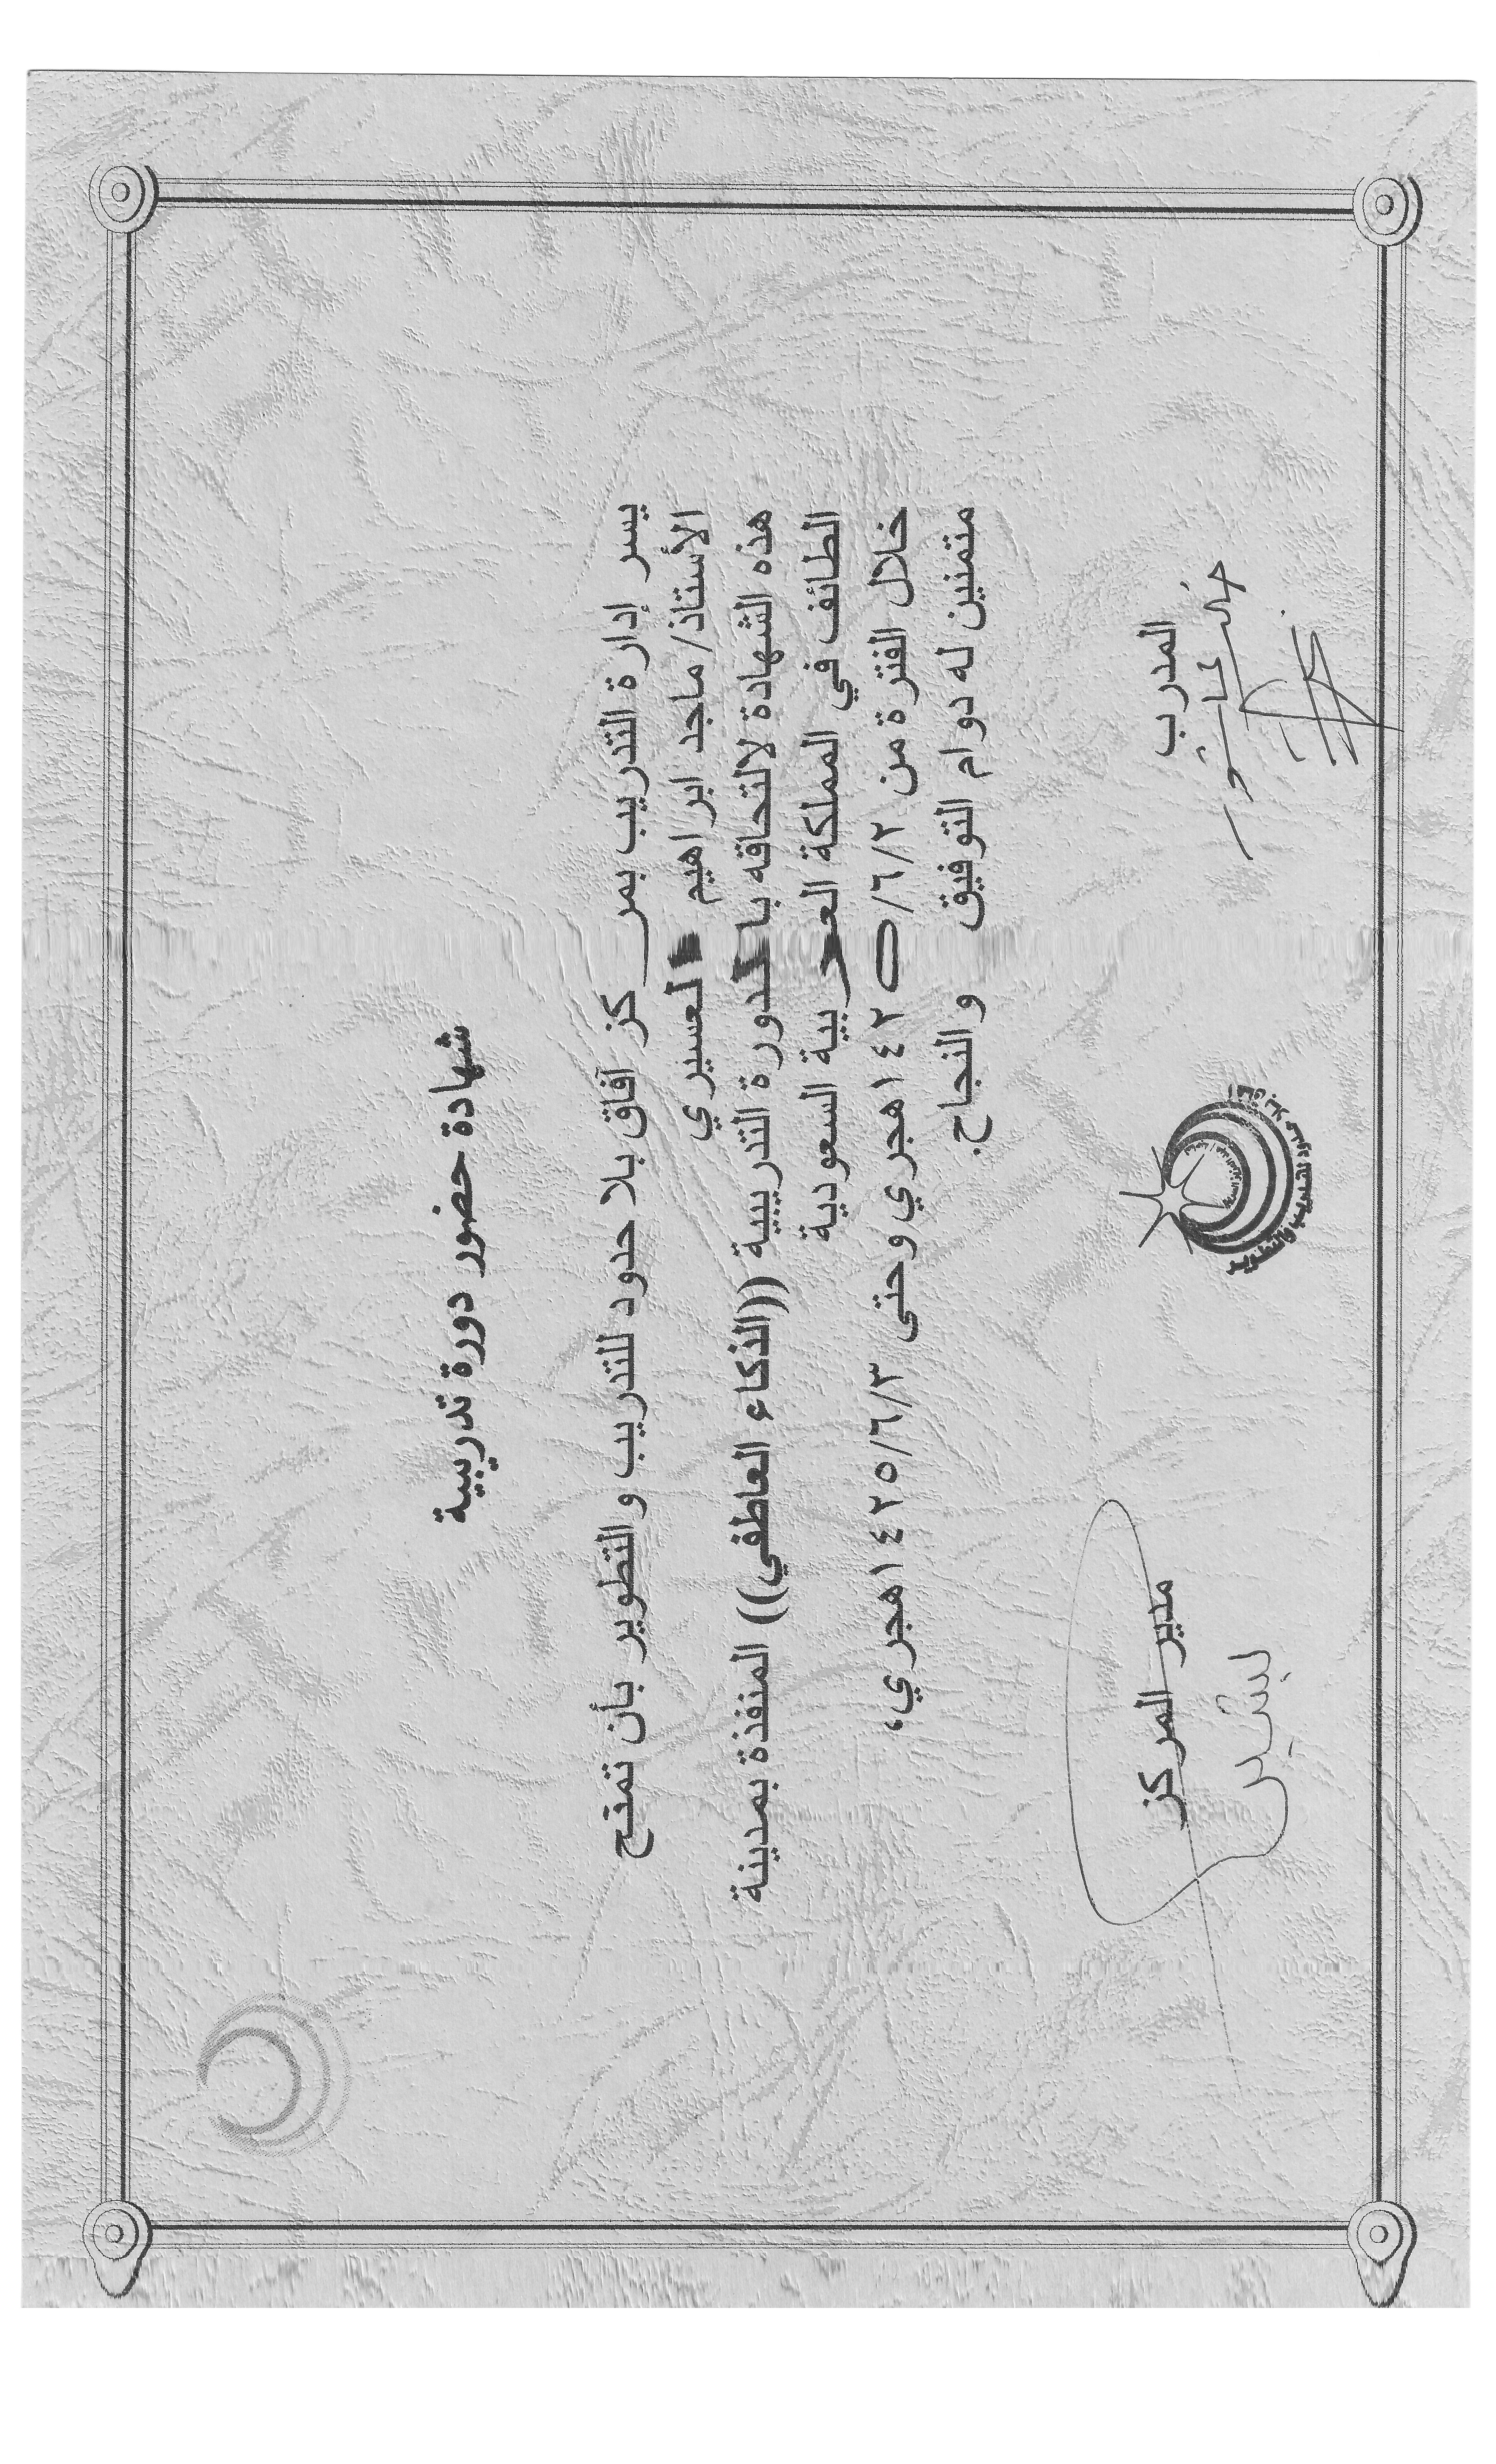 شهادة حضور دورة تدريبية
يسر إدارة التدريب بمركز آفاق بلا حدود للتدريب والتطوير بأن تمنح
الأستاذ/ ماجد ابراهيم العسيري
هذه الشهادة لالتحاقه بالدورة التدريبية ((الذكاء العاطفي)) المنفذة بمدينة
الطائف في المملكة العربية السعودية
خلال الفترة من ١٤٢٥/٦/٢هجري وحتى ١٤٢٥/٦/٣هجري،
متمنين له دوام التوفيق والنجاح.
المدرب
خالد عاشور
مدير المركز
بشير
آفاق بلا حدود للتدريب والتطوير